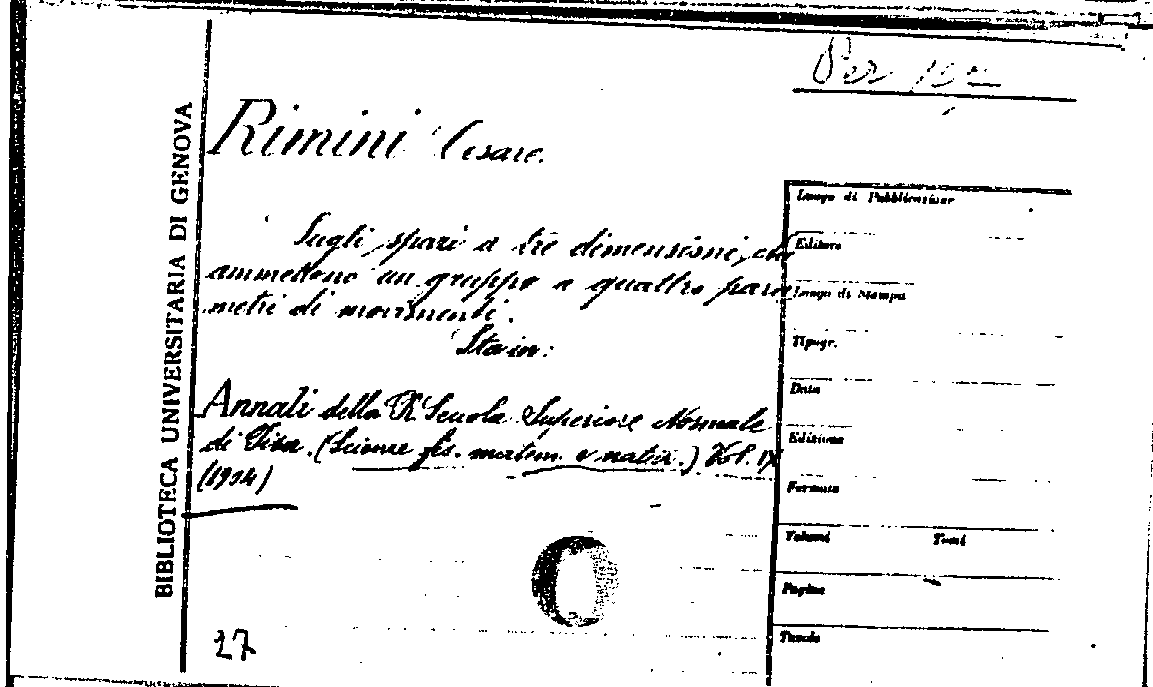 Per
BIBLIOTECA UNIVERSITARIA DI GENOVA
Rimini Cesare.
Sugli spazi a tre dimensioni, che
ammettono un gruppo a quattro para
metri di movimenti.
Sta in:
Annali della R Scuola Superiore Normale
di Pisa. (Scienze fis. matem. e natur.) Vol. IX
(1904)
27
Luogo di Pubblicazione
Editore
Luogo di Stampa
Tipogr.
Data
Edizione
Formato
Volumi Tomi
Pagine
Tavole